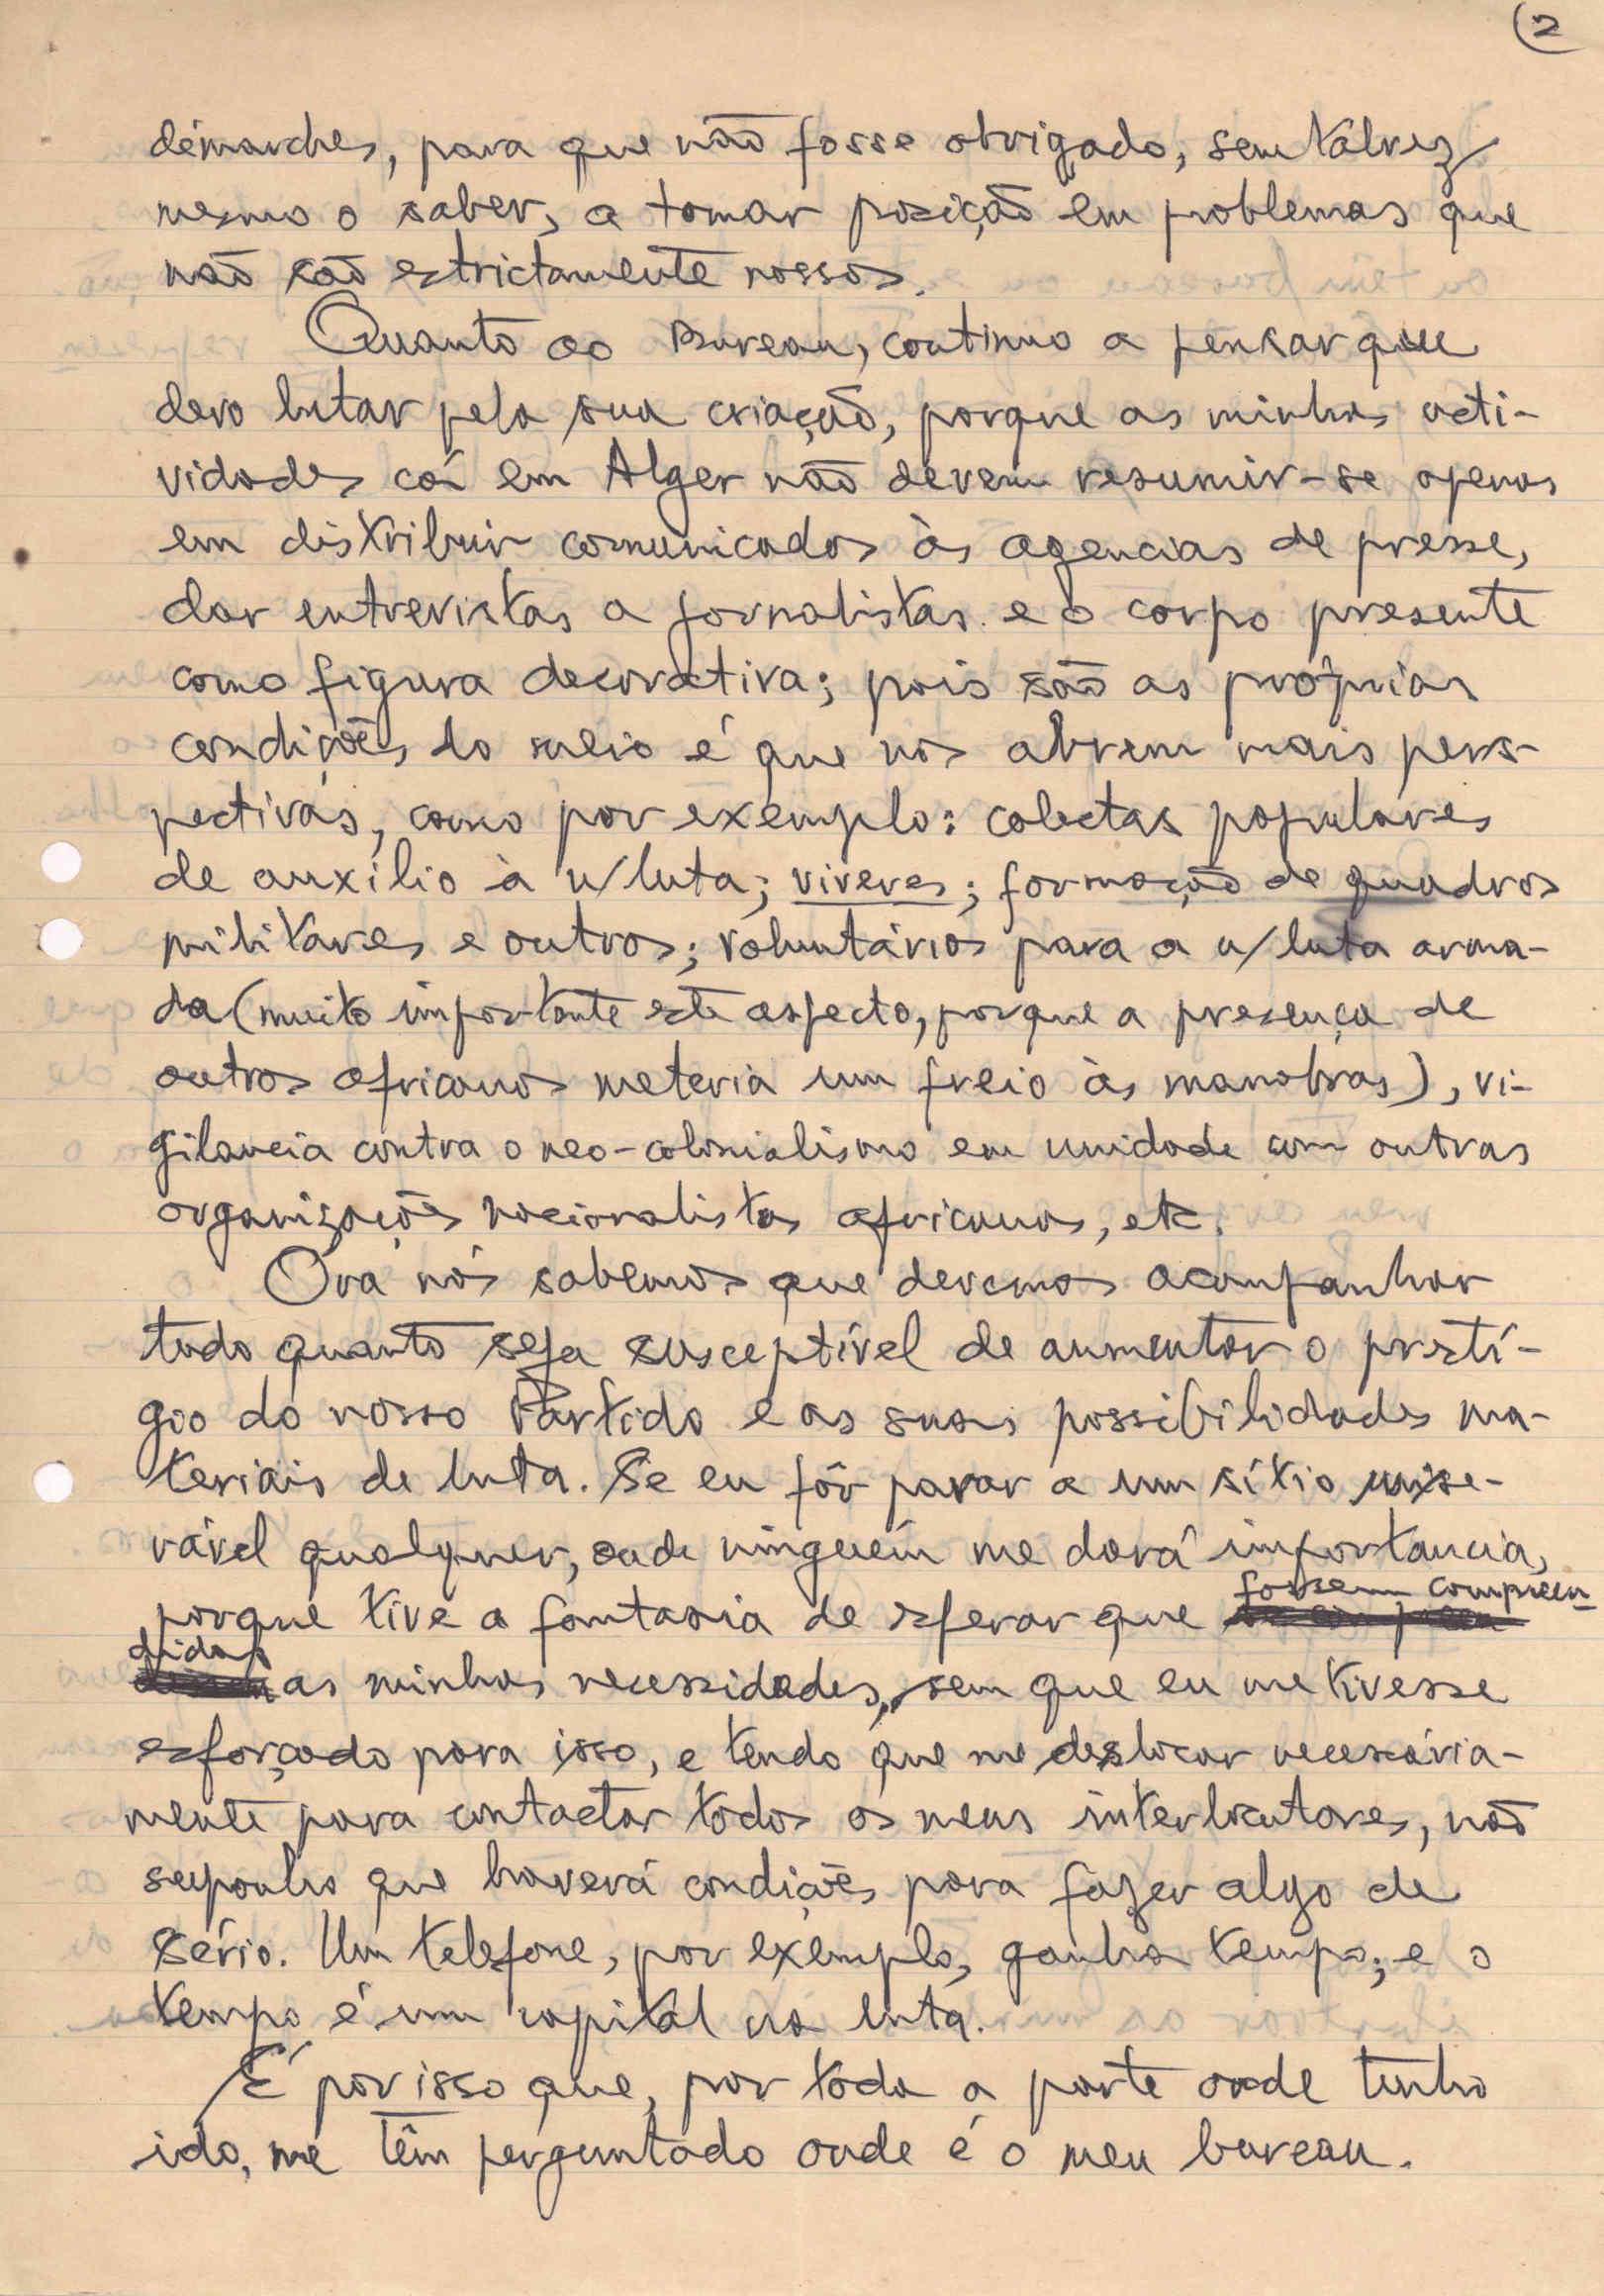 (2
démarches, para que não fosse obrigado, sem talvez
mesmo o saber, a tomar posição em problemas que
não são estrictamente nossos.
Quanto ao Bureau, continuo a pensar que
devo lutar pela sua criação, porque as minhas acti-
vidades cá em Alger não devem resumir-se apenas
em distribuir comunicados às agencias de presse,
dar entrevistas a jornalistas e o corpo presente
como figura decorativa; pois são as próprias
condições do meio é que nos abrem mais pers-
pectivas, como por exemplo: colectas populares
de auxílio à n/luta; viveres; formação de quadros
militares e outros; voluntários para a n/luta arma-
da (muito importante este aspecto, porque a presença de
outros africanos meteria um freio às manobras), vi-
gilancia contra o neo-colonialismo em unidade com outras
organizações nacionalistas africanas, etc.
Ora nós sabemos que devemos acompanhar
tudo quanto seja susceptível de aumentar o prestí-
gio do nosso Partido e as suas possibilidades ma-
teriais de luta. Se eu fôr parar a um sítio mise-
rável qualquer, onde ninguém me dará importancia,
porque tive a fantasia de esperar que fossem compreen-
didas as minhas necessidades, sem que eu me tivesse
esforçado para isso, e tendo que me deslocar necessária-
mente para contactar todos os meus interlocutores, não
suponho que haverá condições para fazer algo de
sério. Um telefone, por exemplo, ganha tempo; e o
tempo é um capital na luta.
É por isso que, por toda a parte onde tenho
ido, me têm perguntado onde é o meu bureau.